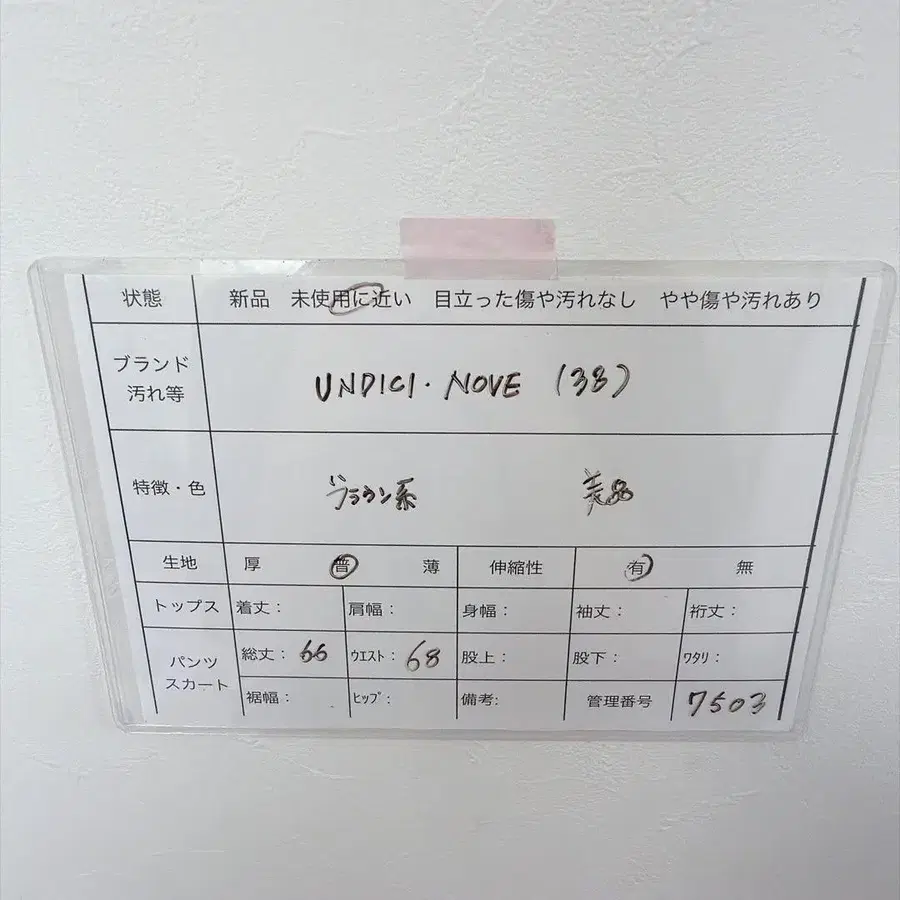 状態 新品 未使用に近い 目立った傷や汚れなし やや傷や汚れあり
ブランド
汚れ等
UNDICI・NOVE (38)
特徴・色 ブラウン系 美品
生地 厚 普 薄 伸縮性 有 無
トップス 着丈: 肩幅: 身幅: 袖丈: 裄丈:
パンツ
スカート
総丈: 66 ウエスト: 68 股上: 股下: ワタリ:
裾幅: ヒップ: 備考: 管理番号 7503